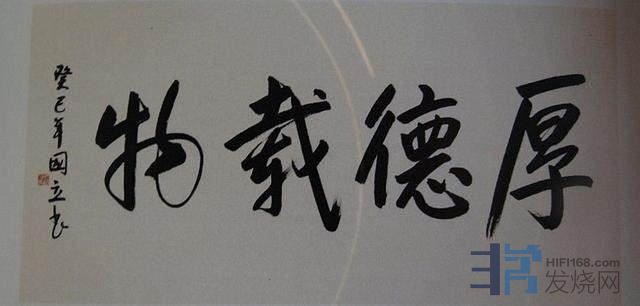 厚德載物
癸巳年國立书
HIFI168.com
发烧网